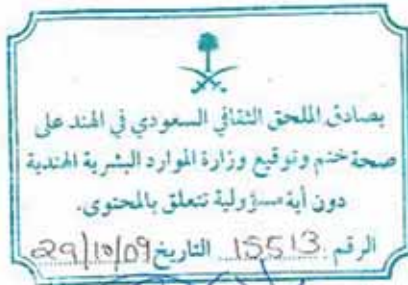 يصادق الملحق الثقافي السعودي في الهند على
صحة ختم وتوقيع وزارة الموارد البشرية الهندية
دون أية مسؤولية تتعلق بالمحتوى.
الرقم 15513 التاريخ 29/10/09